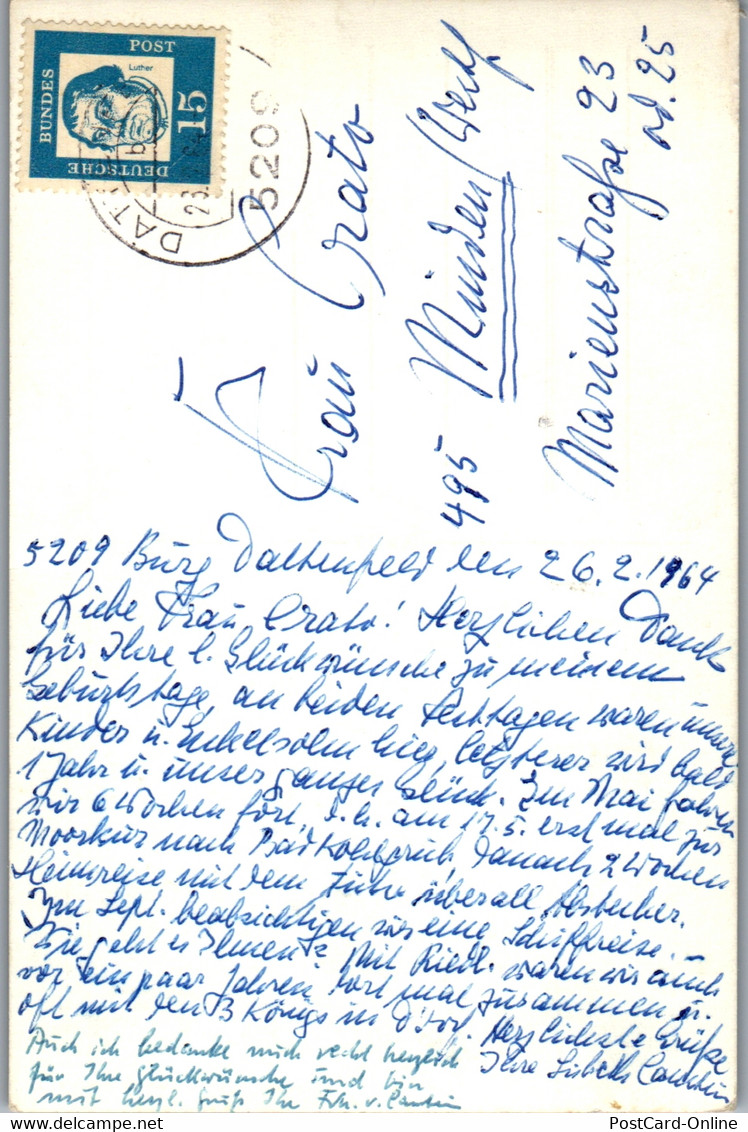 DEUTSCHE BUNDES POST
Luther
15
5209
Frau Crato
495 Minden/Westf
Marienstraße 23
od. 25
5209 Burg Dattenfeld den 26.2.1964
Liebe Frau Crato! Herzlichen Dank
für Ihre l. Glückwünsche zu meinem
Geburtstage, an beiden Festtagen waren unsere
Kinder u. Enkelsohn hier, letzterer wird bald
1 Jahr u. unser ganzes Glück. Im Mai fahren
wir 6 Wochen fort, d.h. am 17.5. erst mal zur
Moorkur nach Bad Kohlgrub, danach 2 Wochen
Heimreise mit dem Auto überall Abstecher.
Im Sept. beabsichtigen wir eine Schiffreise.-
Wie geht es Ihnen? Mit Riedl. waren wir auch
vor ein paar Jahren dort mal zusammen u.
oft mit den 3 Königs in D'dorf. Herzlichste Grüße
Ihre
Auch ich bedanke mich recht herzlich
für Ihre Glückwünsche und bin
mit herzl. Gruß Ihr
PostCard-Online
PostCard-Online.com